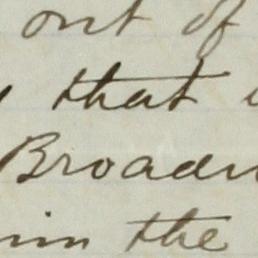 out of
that
Broadw
the